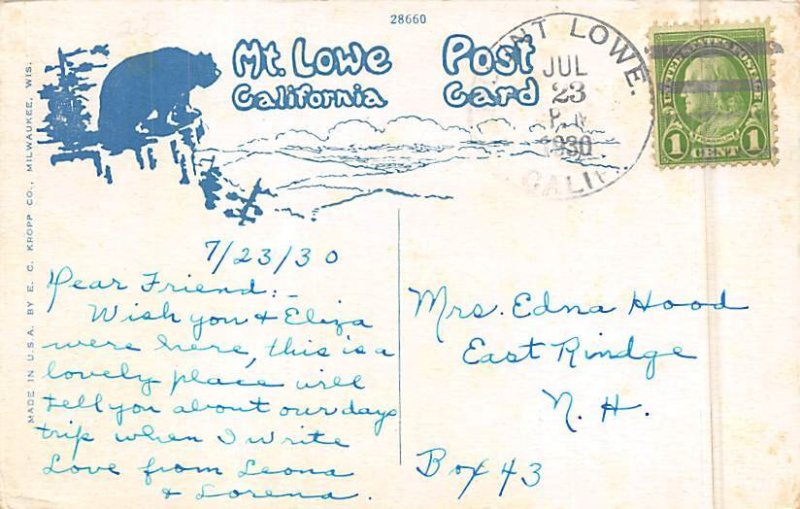 28660
Mt. Lowe Post
California Card
MOUNT LOWE.
JUL
23
P.M.
1930
CALIF.
UNITED STATES POSTAGE
1 CENT 1
MADE IN U.S.A. BY E. C. KROPP CO., MILWAUKEE, WIS.
7/23/30
Dear Friend:-
Wish you & Eliza
were here, this is a
lovely place will
tell you about our days
trip when I write
Love from Leona
& Lorena.
Mrs. Edna Hood
East Rindge
N. H.
Box 43